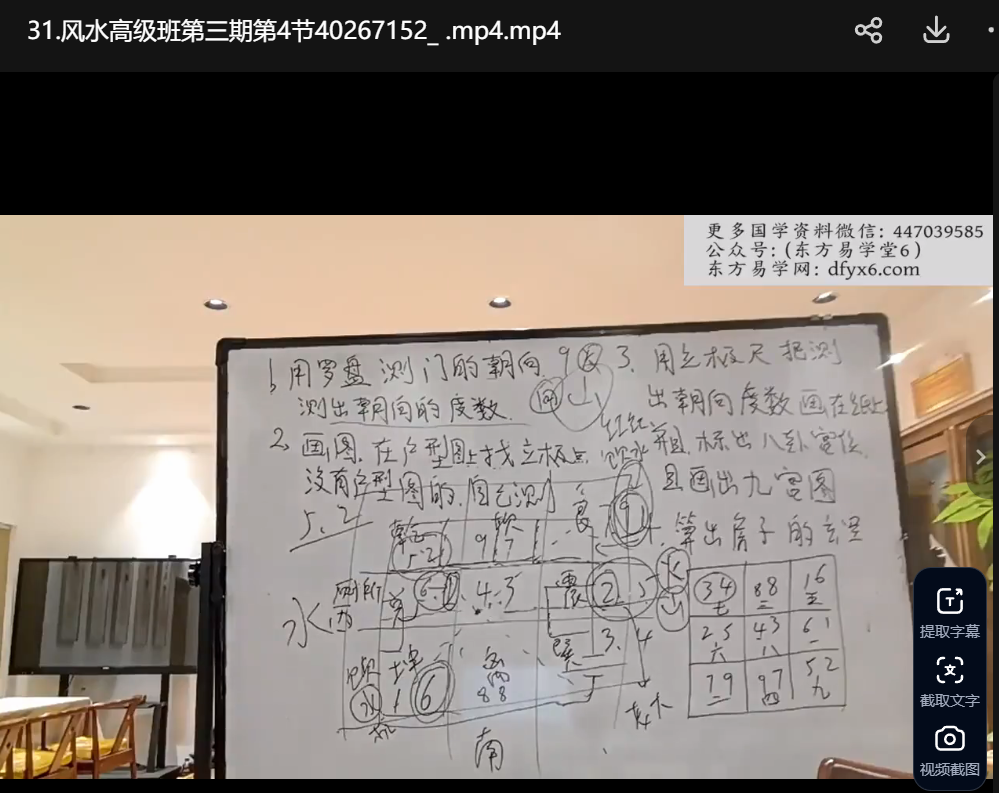 31.风水高级班第三期第4节40267152_ .mp4.mp4
更多国学资料微信: 447039585
公众号:(东方易学堂6)
东方易学网: dfyx6.com
1、用罗盘测门的朝向
测出朝向的度数.
2、画图.在户型图上找立极点
没有户型图的.自己测
3、用立极尺把测
出朝向度数画在纸上
并且标出八卦宫位.
且画出九宫图
算出房子的玄空
5.2
乾
5.2
9 7
艮
9 1
厕所
6.1
4.3
震
2.5
水
西
坤
1 6
离
88
巽
3.4
南
34 88 16
七 三 五
25 43 61
六 八 一
79 97 52
二 四 九
提取字幕
截取文字
视频截图